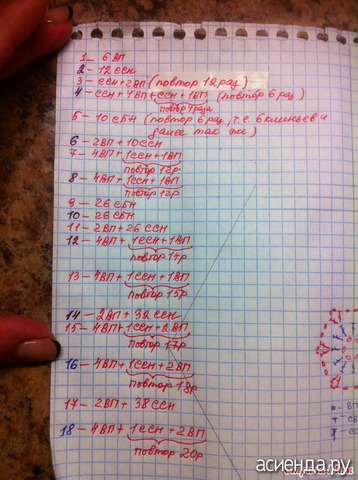 1 - 6 ВП
2 - 12 ССН
3 - ССН+2ВП (повтор 12 раз)
4 - ССН+4ВП+ССН+1ВП (повтор 6 раз)
повтор 4 раза
5 - 10 СБН (повтор 6 раз, т.е. 6 клиньев и
далее так же)
6 - 2ВП+10ССН
7 - 4ВП+1ССН+1ВП
повтор 12р
8 - 4ВП+1ССН+1ВП
повтор 12р
9 - 26 СБН
10 - 26 СБН
11 - 2ВП+26 ССН
12 - 4ВП+1ССН+1ВП
повтор 14р
13 - 4ВП+1ССН+1ВП
повтор 15р
14 - 2ВП+32 ССН
15 - 4ВП+1ССН+2ВП
повтор 17р
16 - 4ВП+1ССН+2ВП
повтор 18р
17 - 2ВП+38 ССН
18 - 4ВП+1ССН+2ВП
повтор 20р
асиенда.ру